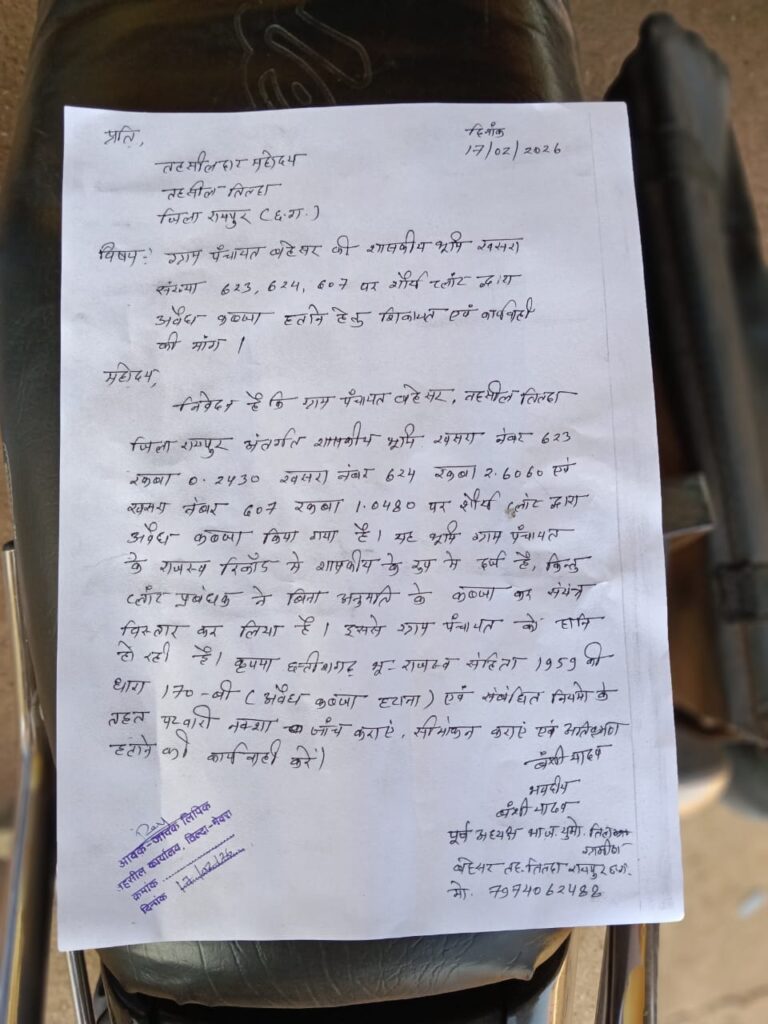 प्रति,
दिनांक
17/02/2026
तहसीलदार महोदय
तहसील तिल्दा
जिला रायपुर (छ.ग.)
विषय:- ग्राम पंचायत बहेसर की शासकीय भूमि खसरा
संख्या 623, 624, 607 पर शौर्य प्लांट द्वारा
अवैध कब्जा हटाने हेतु शिकायत एवं कार्यवाही
की मांग।
महोदय,
निवेदन है कि ग्राम पंचायत बहेसर, तहसील तिल्दा
जिला रायपुर अंतर्गत शासकीय भूमि खसरा नंबर 623
रकबा 0.2430 खसरा नंबर 624 रकबा 2.6060 एवं
खसरा नंबर 607 रकबा 1.0480 पर शौर्य प्लांट द्वारा
अवैध कब्जा किया गया है। यह भूमि ग्राम पंचायत
के राजस्व रिकॉर्ड मे शासकीय के रूप मे दर्ज है, किन्तु
प्लांट प्रबंधक ने बिना अनुमति के कब्जा कर संयंत्र
विस्तार कर लिया है। इससे ग्राम पंचायत को हानि
हो रही है। कृपया छत्तीसगढ़ भू-राजस्व संहिता 1959 की
धारा 170-बी (अवैध कब्जा हटाना) एवं संबंधित नियमो के
तहत पटवारी नक्शा जाँच कराएं, सीमांकन कराएं एवं अतिक्रमण
हटाने की कार्यवाही करें।
बंशी यादव
भवदीय
बंशी यादव
पूर्व अध्यक्ष भाजयुमो. तिल्दा
ग्रामीण
बहेसर तह. तिल्दा रायपुर छ.ग.
मो. 7974062488
आवक-जावक लिपिक
तहसील कार्यालय, तिल्दा-नेवरा
क्रमांक
दिनांक 17/02/26